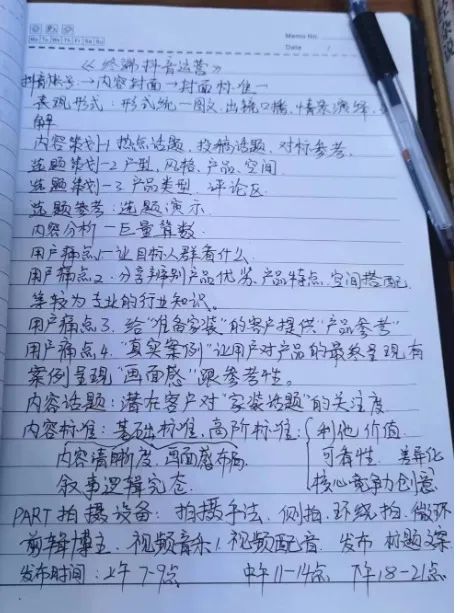 Memo No.
Mo Tu We Th Fr Sa Su
Date /
《终端抖音运营》
抖音帐号→内容封面→封面标准一
表现形式：形式统一图文.出镜口播.情景演绎.
解
内容策划-1 热点话题、投稿话题、对标参考.
选题策划-2 户型,风格、产品、空间
选题策划-3 产品类型、评论区
选题参考：选题演示.
内容分析一巨量算数.
用户痛点1一让目标人群看什么.
用户痛点2.分享辨别产品优劣.产品特点.空间搭配.
等较为专业的行业知识。
用户痛点3.给"准备家装"的客户提供"产品参考"
用户痛点4."真实案例"让用户对产品的最终呈现有
案例呈现"画面感"跟参考性。
内容话题：潜在客户对"家装话题"的关注度
内容标准：基础标准.高阶标准：利他 价值
内容清晰度.画面感布局 可看性. 差异化
叙事逻辑完态 核心竞争力创意
PART 拍摄设备：拍摄手法.侧拍.环绕拍.
剪辑博主、视频音乐/视频配音.发布 标题文案
发布时间：上午7-9点 中午11-14点 下午18-21点